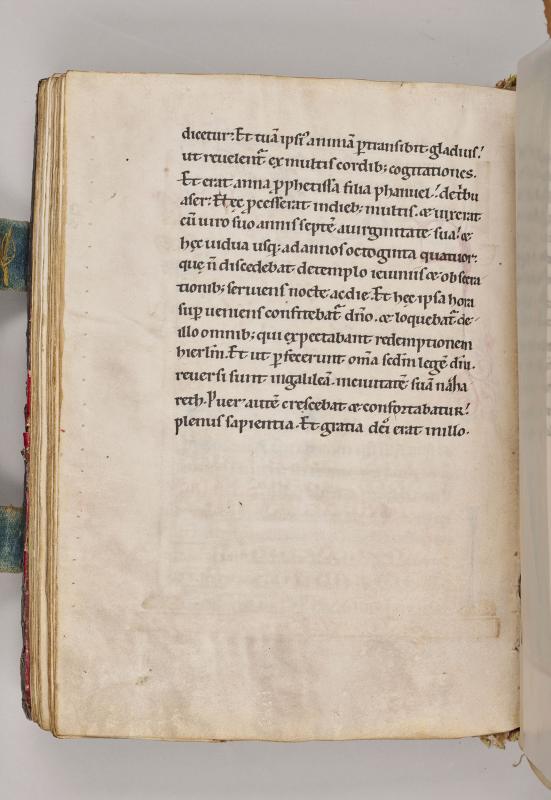 dicetur: Et tuā ipsiꝰ animā ꝑtransibit gladius!
ut reuelent᷑ ex multis cordib; cogitationes.
Et erat anna ꝓphetissa filia phanuel! detribu
aser: Hęc ꝓcesserat indieb; multis. & uixerat
cū uiro suo annis septē auirginitate sua! &
hęc uidua usq; adannos octoginta quatuor:
quę n̄ discedebat detemplo ieiuniis & obsecra
tionib; seruiens nocte acdie. Et hęc ipsa hora
suꝑueniens confitebat᷑ dn̄o. & loquebat᷑ de
illo omnib; qui expectabant redemptionem
hierlm̄. Et ut ꝑfecerunt om̄a scdm̄ legē dn̄i.
reuersi sunt ingalileā. inciuitatē suā naza
reth. Puer autē crescebat & confortabatur!
plenus sapientia. Et gratia dei erat inillo.